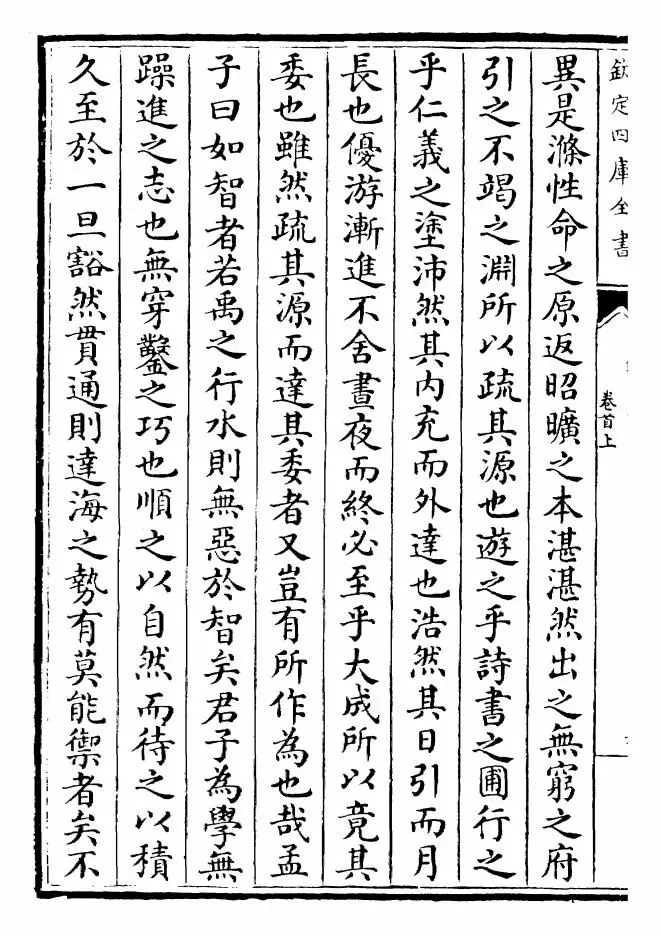 欽定四庫全書
卷首上
異是滌性命之原返昭曠之本湛湛然出之無窮之府
引之不竭之淵所以疏其源也遊之乎詩書之圃行之
乎仁義之塗沛然其内充而外達也浩然其日引而月
長也優游漸進不舍晝夜而終必至乎大成所以竟其
委也雖然疏其源而達其委者又豈有所作為也哉孟
子曰如智者若禹之行水則無惡於智矣君子為學無
躁進之志也無穿鑿之巧也順之以自然而待之以積
久至於一旦豁然貫通則達海之勢有莫能禦者矣不